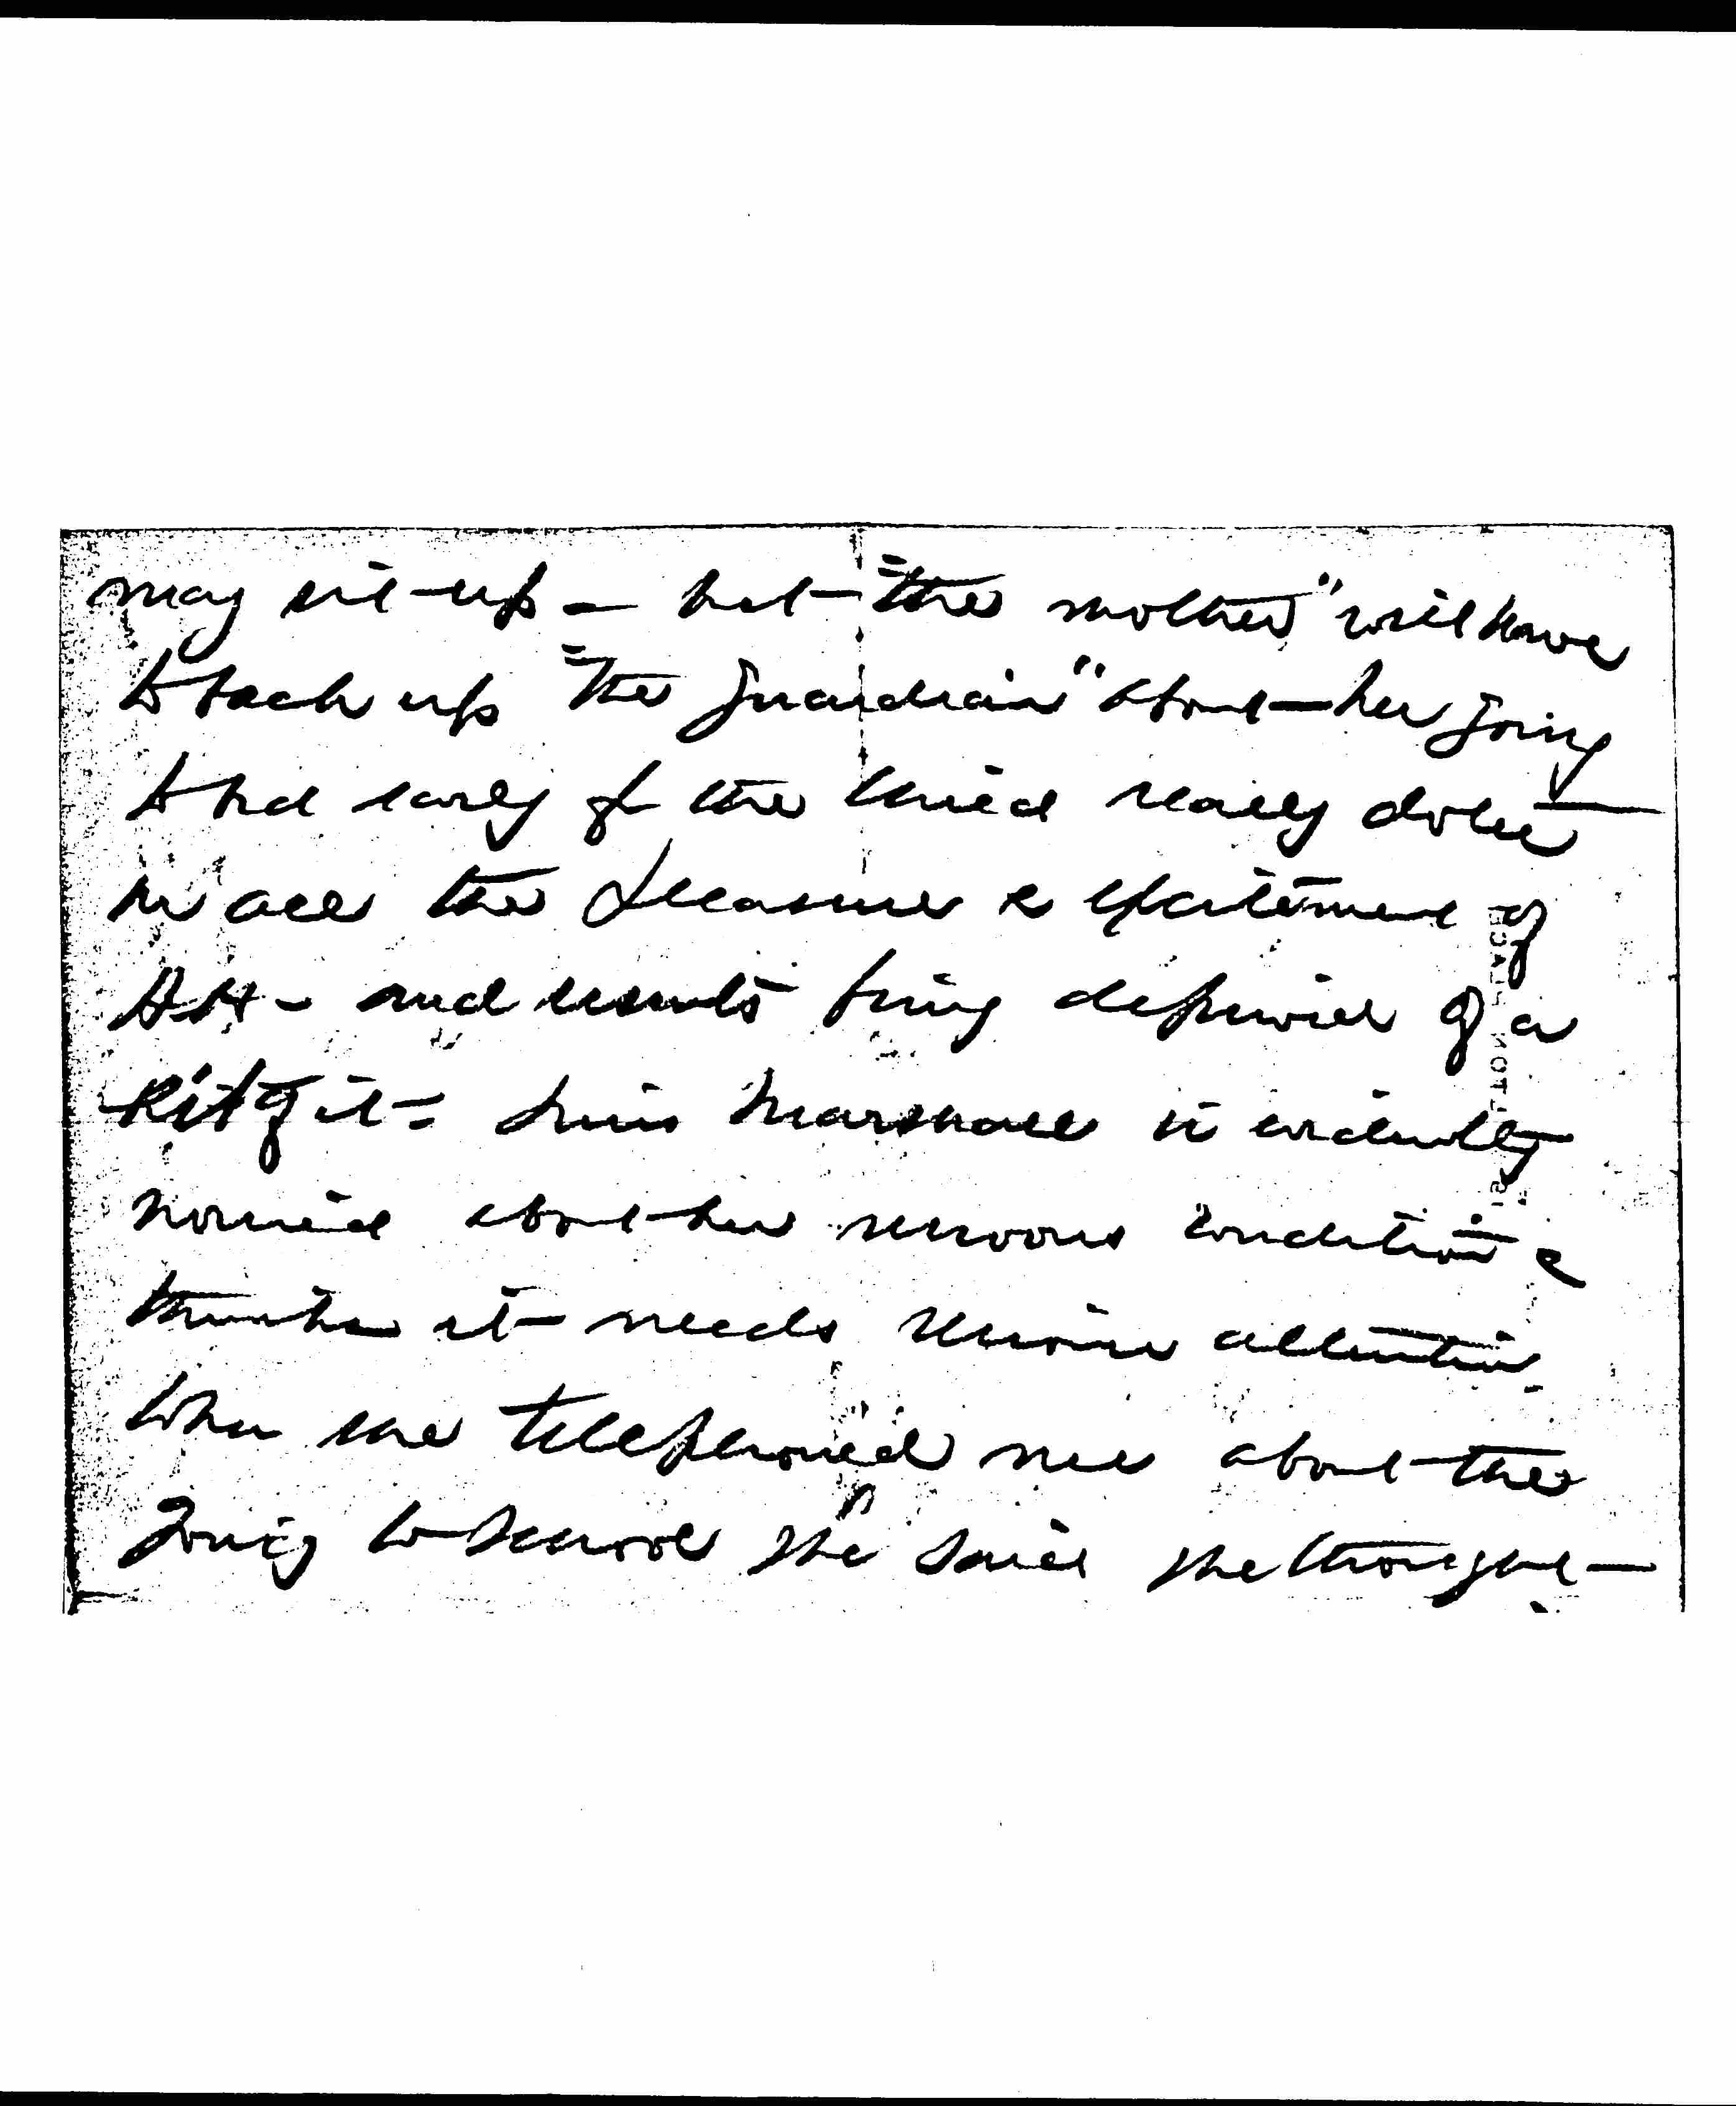 may sit up - but "the mother" will have
to back up "the guardian" about her going
to bed early for the child really
in all the pleasure & excitement of
and resents being deprived of a
bit of it - Miss Marshall is evidently
worried about her nervous condition &
thinks it needs serious attention
When she telephoned me about the
going to school she said she thought